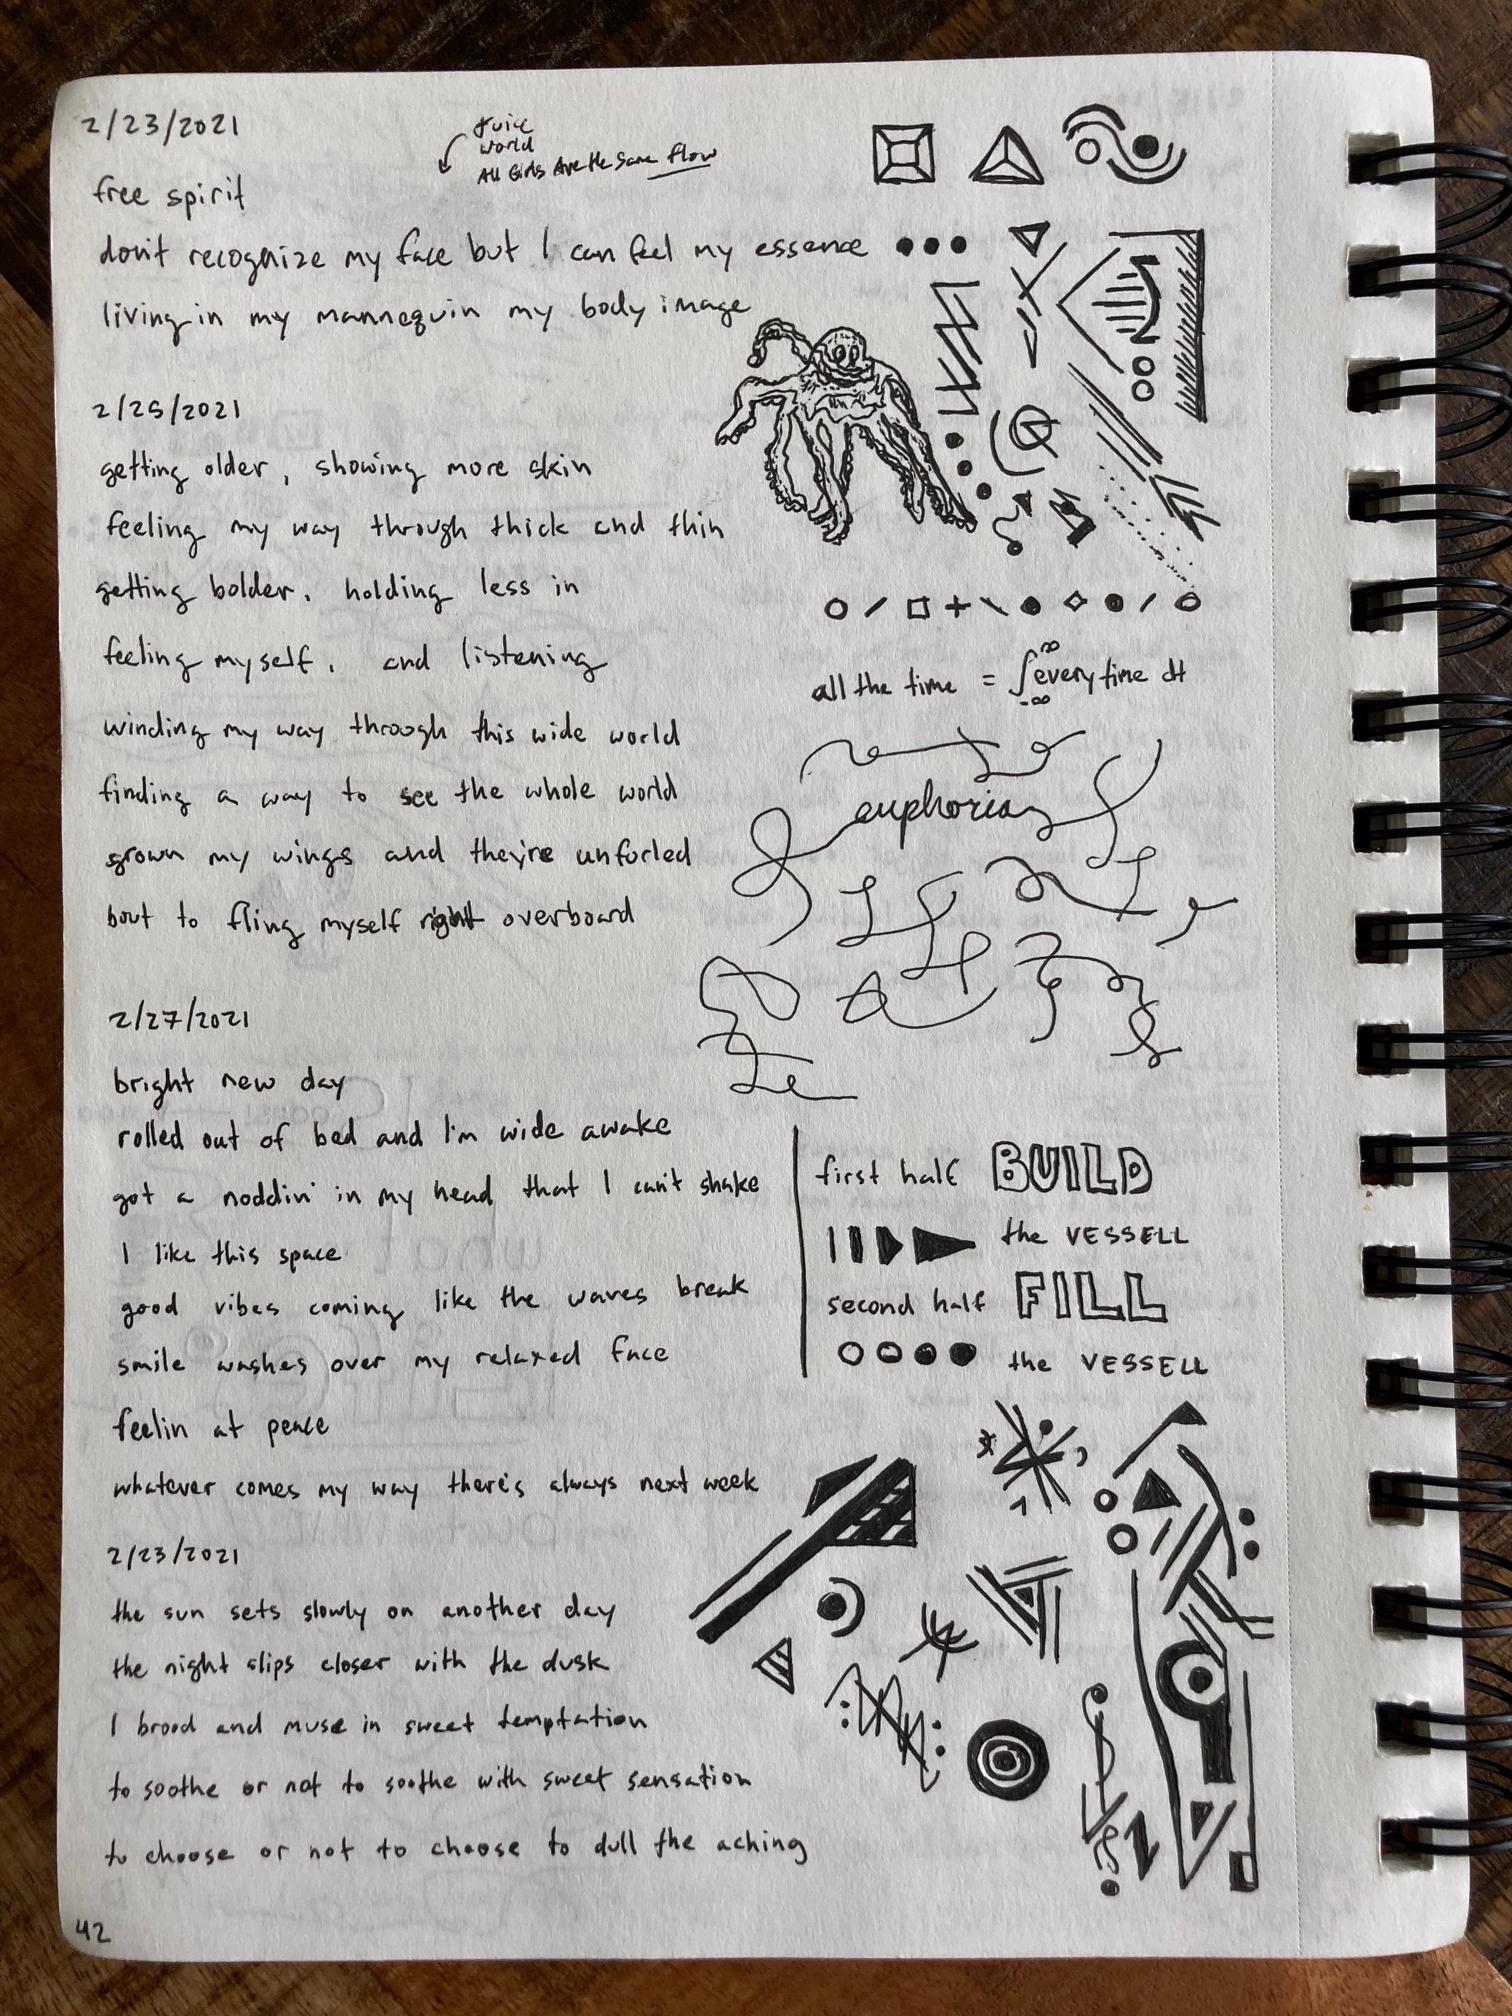 2/23/2021
Juice
World
All Girls Are the Same flow
free spirit
don't recognize my face but I can feel my essence
living in my mannequin my body image
2/25/2021
getting older, showing more skin
feeling my way through thick and thin
getting bolder, holding less in
feeling myself, and listening
winding my way through this wide world
finding a way to see the whole world
grown my wings and they're unfurled
bout to fling myself right overboard
all the time = ∫ everytime dt
∞
-∞
euphoria
2/27/2021
bright new day
rolled out of bed and I'm wide awake
got a noddin' in my head that I can't shake
I like this space
good vibes coming like the waves break
smile washes over my relaxed face
feelin at peace
whatever comes my way there's always next week
first half BUILD
the VESSELL
second half FILL
the VESSELL
2/23/2021
the sun sets slowly on another day
the night slips closer with the dusk
I brood and muse in sweet temptation
to soothe or not to soothe with sweet sensation
to choose or not to choose to dull the aching
42